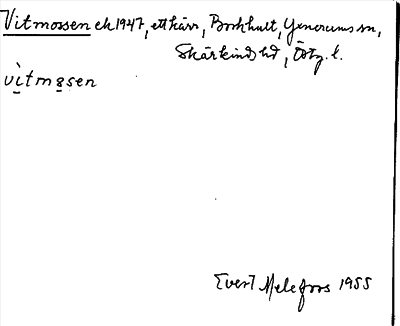 Vitmossen ek 1947, ett kärr, Borkhult, Yxnerums sn,
Skärkinds hd, Östg. l.
vìtmåsen
Evert Melefors 1955